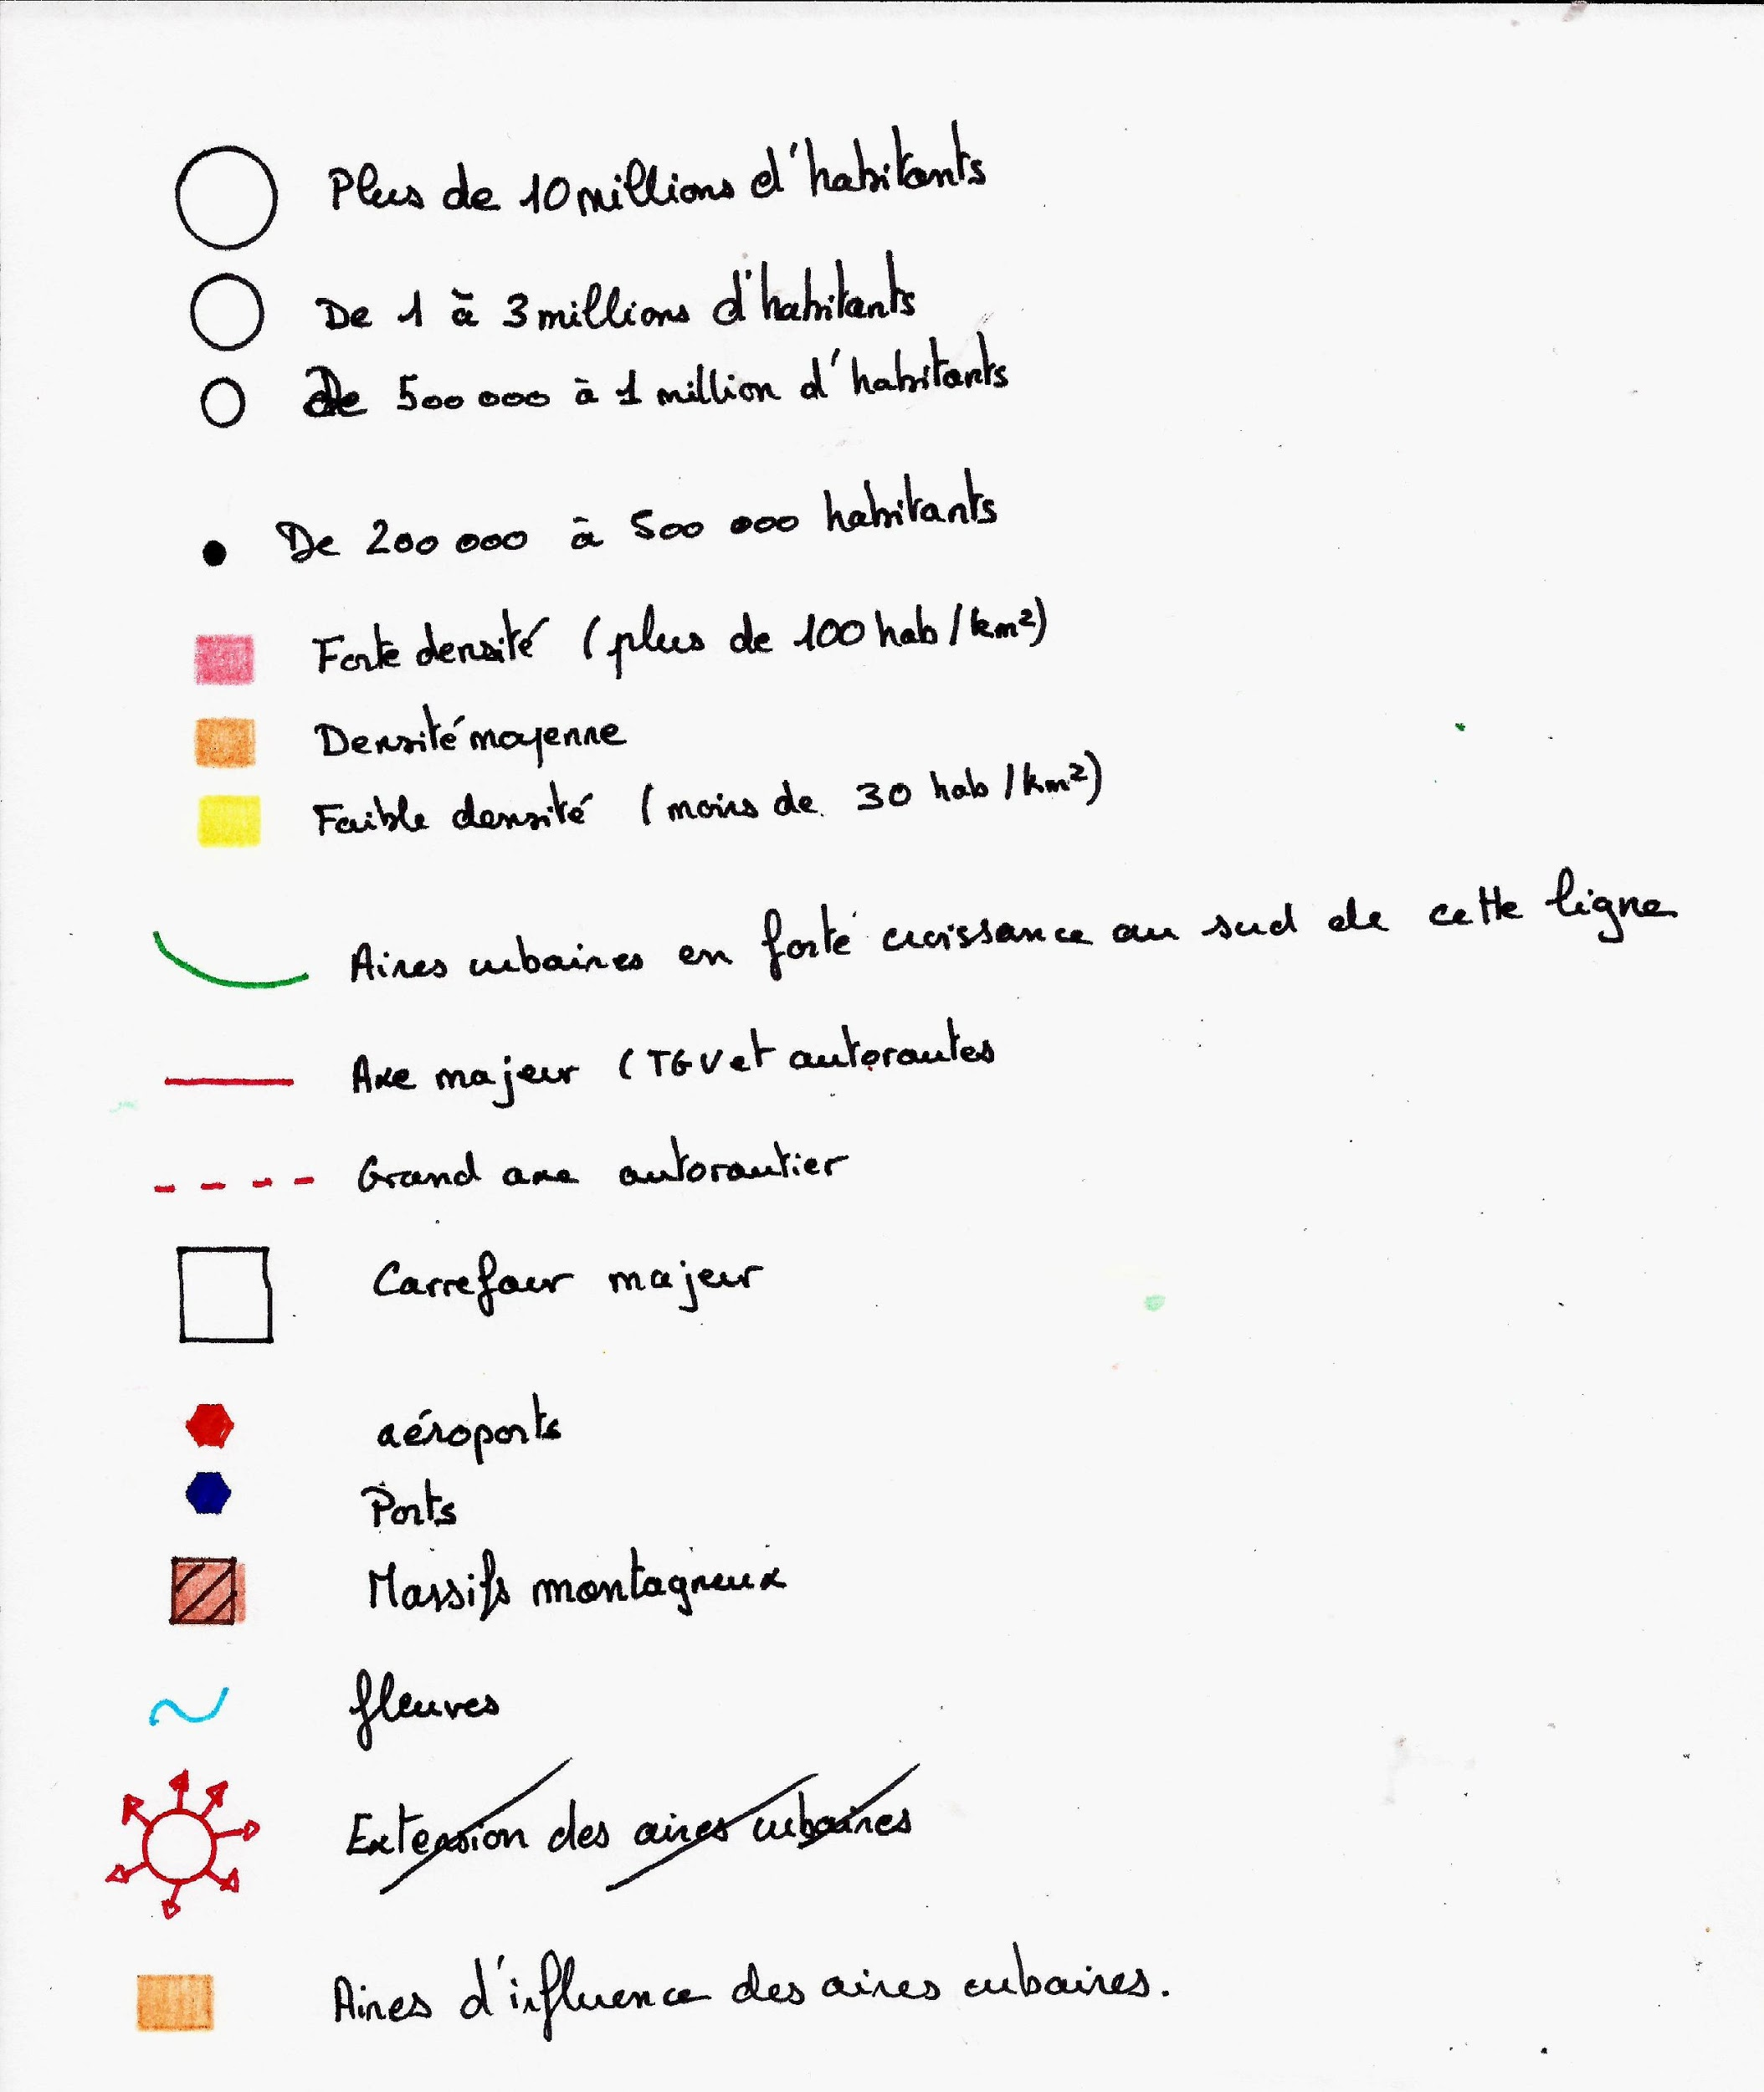 Plus de 10 millions d'habitants
De 1 à 3 millions d'habitants
De 500 000 à 1 million d'habitants
De 200 000 à 500 000 habitants
Forte densité (plus de 100 hab/km²)
Densité moyenne
Faible densité (moins de 30 hab/km²)
Aires urbaines en forte croissance au sud de cette ligne
Axe majeur (TGV et autoroutes
Grand axe autoroutier
Carrefour majeur
aéroports
Ports
Massifs montagneux
fleuves
Extension des aires urbaines
Aires d'influence des aires urbaines.